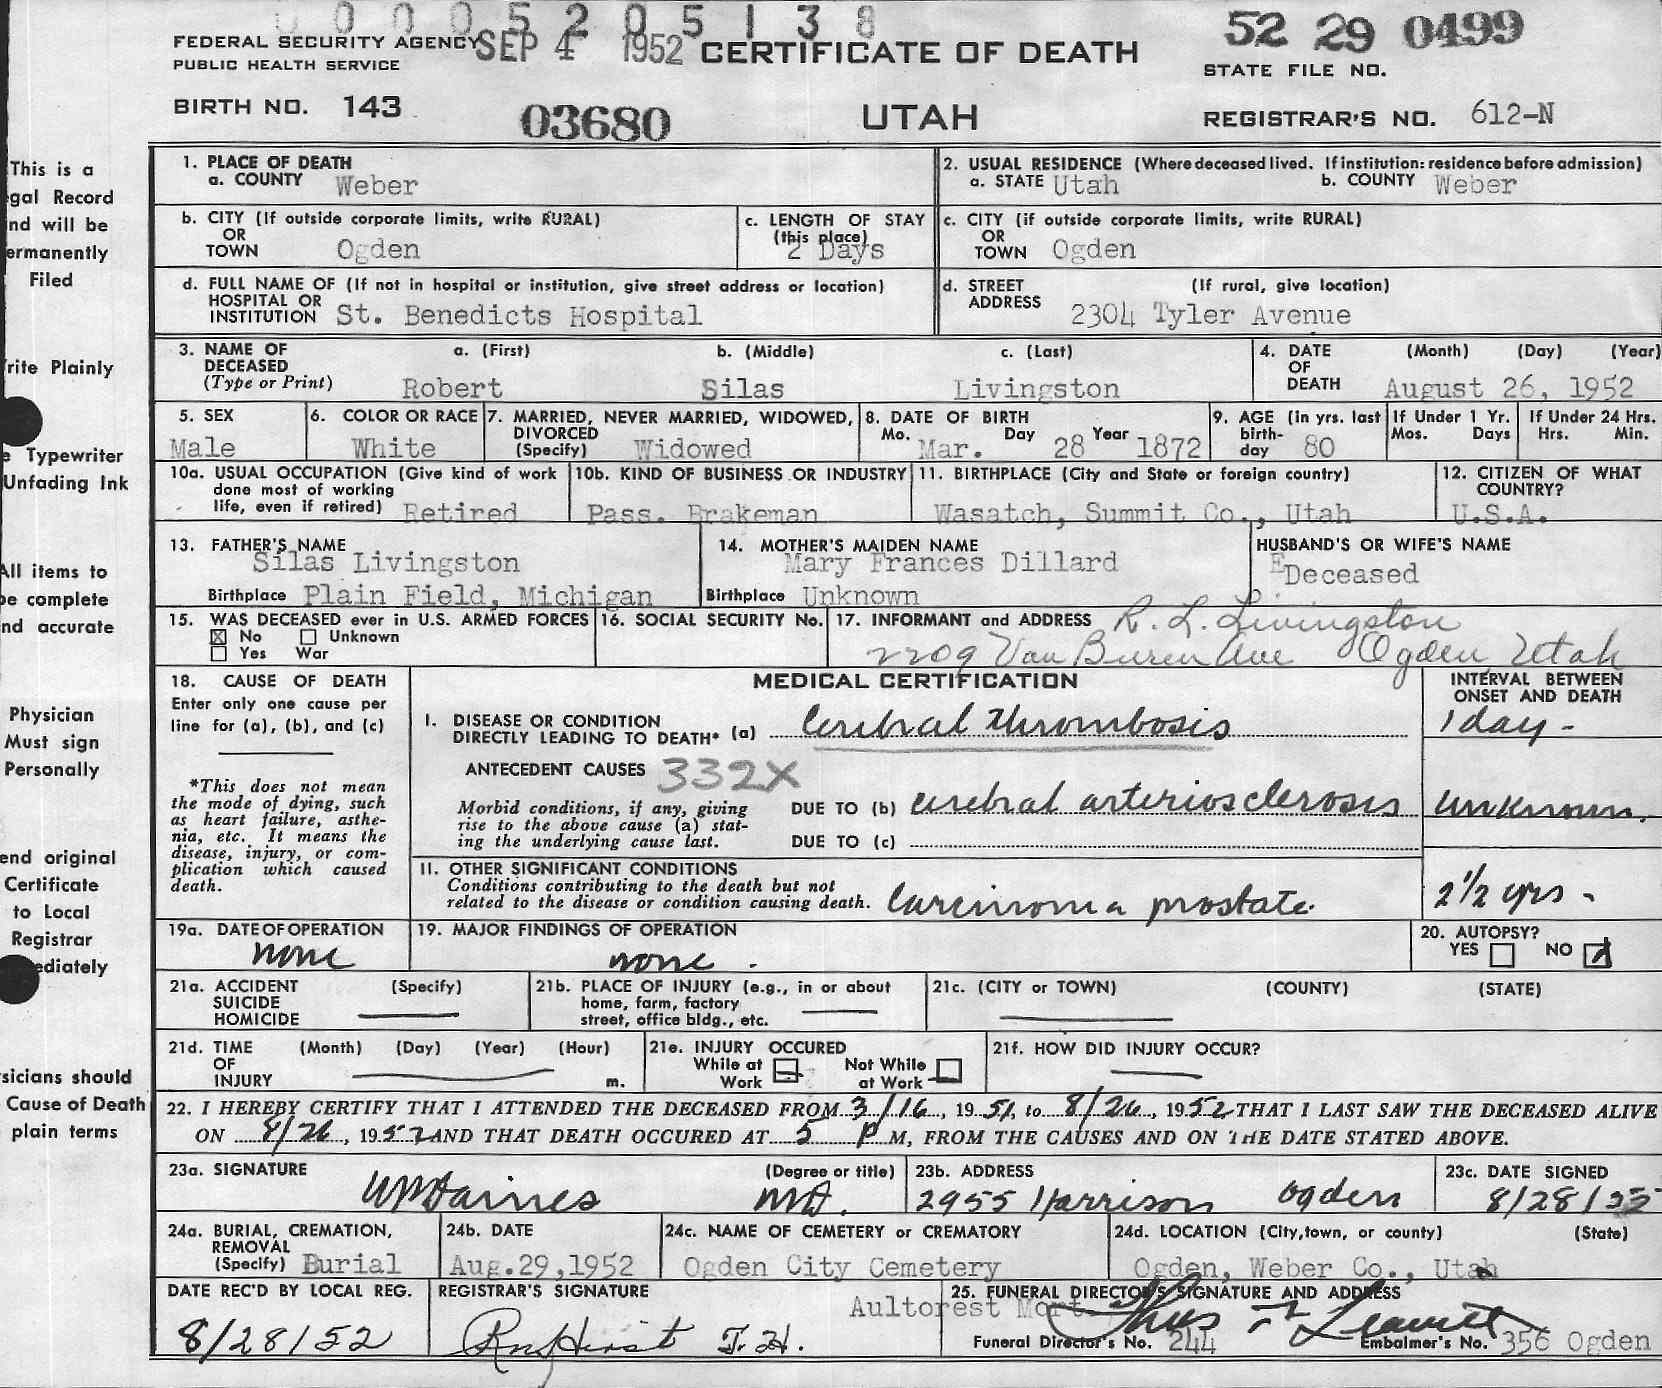 0 0 0 0 5 2 0 5 1 3 8
FEDERAL SECURITY AGENCY SEP 4 1952 CERTIFICATE OF DEATH 52 29 0499
PUBLIC HEALTH SERVICE STATE FILE NO.
BIRTH NO. 143 03680 UTAH REGISTRAR'S NO. 612-N
This is a
gal Record
nd will be
ermanently
Filed
rite Plainly
e Typewriter
Unfading Ink
All items to
be complete
nd accurate
Physician
Must sign
Personally
end original
Certificate
to Local
Registrar
ediately
sicians should
Cause of Death
plain terms
1. PLACE OF DEATH
a. COUNTY Weber
2. USUAL RESIDENCE (Where deceased lived. If institution: residence before admission)
a. STATE Utah b. COUNTY Weber
b. CITY (If outside corporate limits, write RURAL)
OR
TOWN Ogden
c. LENGTH OF STAY
(this place)
2 Days
c. CITY (if outside corporate limits, write RURAL)
OR
TOWN Ogden
d. FULL NAME OF (If not in hospital or institution, give street address or location)
HOSPITAL OR
INSTITUTION St. Benedicts Hospital
d. STREET (If rural, give location)
ADDRESS
2304 Tyler Avenue
3. NAME OF a. (First) b. (Middle) c. (Last)
DECEASED
(Type or Print) Robert Silas Livingston
4. DATE (Month) (Day) (Year)
OF
DEATH August 26, 1952
5. SEX
Male
6. COLOR OR RACE
White
7. MARRIED, NEVER MARRIED, WIDOWED,
DIVORCED
(Specify) Widowed
8. DATE OF BIRTH
Mo. Mar. Day 28 Year 1872
9. AGE (in yrs. last
birth-
day 80
If Under 1 Yr.
Mos. Days
If Under 24 Hrs.
Hrs. Min.
10a. USUAL OCCUPATION (Give kind of work
done most of working
life, even if retired) Retired
10b. KIND OF BUSINESS OR INDUSTRY
Pass. Brakeman
11. BIRTHPLACE (City and State or foreign country)
Wasatch, Summit Co., Utah
12. CITIZEN OF WHAT
COUNTRY?
U.S.A.
13. FATHER'S NAME
Silas Livingston
Birthplace Plain Field, Michigan
14. MOTHER'S MAIDEN NAME
Mary Frances Dillard
Birthplace Unknown
HUSBAND'S OR WIFE'S NAME
Deceased
15. WAS DECEASED ever in U.S. ARMED FORCES
☒ No ☐ Unknown
☐ Yes War
16. SOCIAL SECURITY No.
17. INFORMANT and ADDRESS R. L. Livingston
2209 Van Buren Ave Ogden Utah
18. CAUSE OF DEATH
Enter only one cause per
line for (a), (b), and (c)
*This does not mean
the mode of dying, such
as heart failure, asthe-
nia, etc. It means the
disease, injury, or com-
plication which caused
death.
MEDICAL CERTIFICATION
INTERVAL BETWEEN
ONSET AND DEATH
I. DISEASE OR CONDITION
DIRECTLY LEADING TO DEATH* (a) Cerebral thrombosis 1 day -
ANTECEDENT CAUSES 332X
Morbid conditions, if any, giving
rise to the above cause (a) stat-
ing the underlying cause last.
DUE TO (b) cerebral arteriosclerosis unknown.
DUE TO (c)
II. OTHER SIGNIFICANT CONDITIONS
Conditions contributing to the death but not
related to the disease or condition causing death. Carcinoma prostate. 2 1/2 yrs -
19a. DATE OF OPERATION
none
19. MAJOR FINDINGS OF OPERATION
none.
20. AUTOPSY?
YES ☐ NO ☒
21a. ACCIDENT (Specify)
SUICIDE
HOMICIDE
21b. PLACE OF INJURY (e.g., in or about
home, farm, factory
street, office bldg., etc.
21c. (CITY or TOWN) (COUNTY) (STATE)
21d. TIME (Month) (Day) (Year) (Hour)
OF
INJURY m.
21e. INJURY OCCURED
While at ☐ Not While ☐
Work at Work
21f. HOW DID INJURY OCCUR?
22. I HEREBY CERTIFY THAT I ATTENDED THE DECEASED FROM 3/16, 1951, to 8/26, 1952 THAT I LAST SAW THE DECEASED ALIVE
ON 8/26, 1952 AND THAT DEATH OCCURED AT 5 P M, FROM THE CAUSES AND ON THE DATE STATED ABOVE.
23a. SIGNATURE (Degree or title)
WP Daines MD.
23b. ADDRESS
2955 Harrison Ogden
23c. DATE SIGNED
8/28/
24a. BURIAL, CREMATION,
REMOVAL
(Specify) Burial
24b. DATE
Aug.29,1952
24c. NAME OF CEMETERY or CREMATORY
Ogden City Cemetery
24d. LOCATION (City,town, or county) (State)
Ogden, Weber Co., Utah
DATE REC'D BY LOCAL REG.
8/28/52
REGISTRAR'S SIGNATURE
T.H.
25. FUNERAL DIRECTOR'S SIGNATURE AND ADDRESS
Aultorest Mort.
Funeral Director's No. 244 Embalmer's No. 356 Ogden